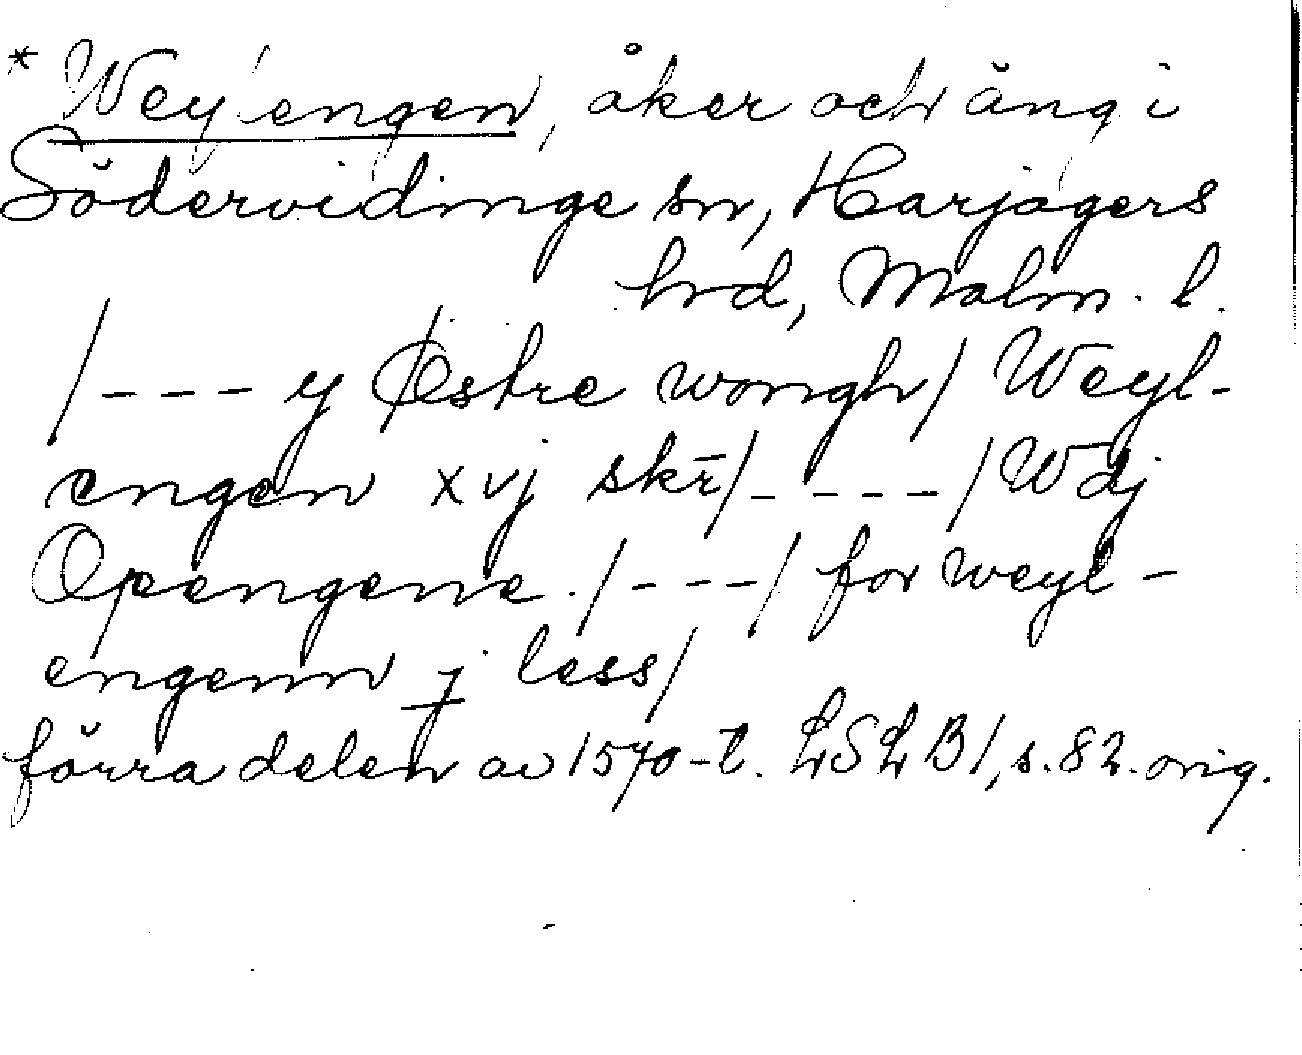 * Wey'engen, åker och äng i
Södervidinge sn, Harjagers
hrd, Malm. l.
/--- y Østre wongh/ Weyl-
engen xvj skr̄/- - - -/ Wdj
Opeengene. /---/ for weyl-
engenn j less/
förra delen av 1570-t. LSLB1, s. 82. orig.